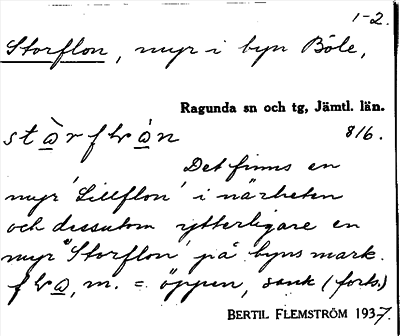 1-2.
Storflon, myr i byn Böle,
Ragunda sn och tg, Jämtl. län.
816.
Det finns en
myr 'Lillflon' i närheten
och dessutom ytterligare en
myr 'Storflon' på byns mark.
m. = öppen, sank (forts.)
BERTIL FLEMSTRÖM 1937.